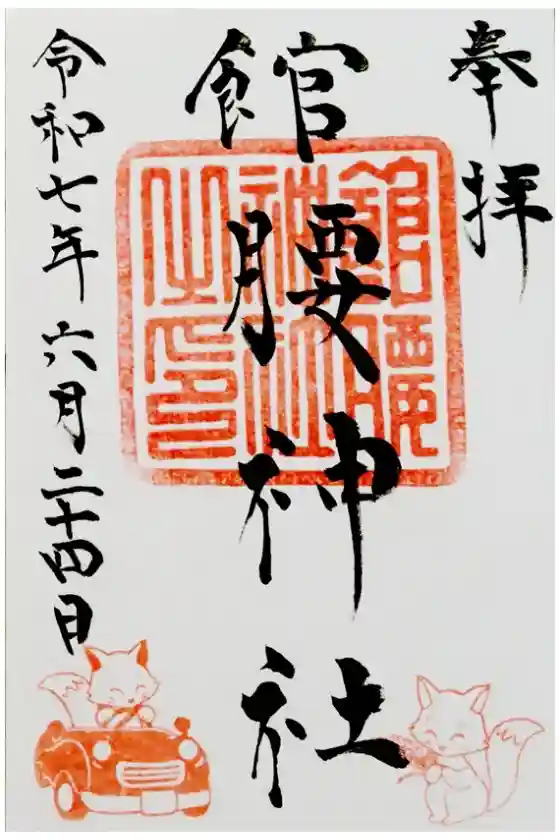 奉拝
館腰神社
館腰神社之印
令和七年六月二十四日